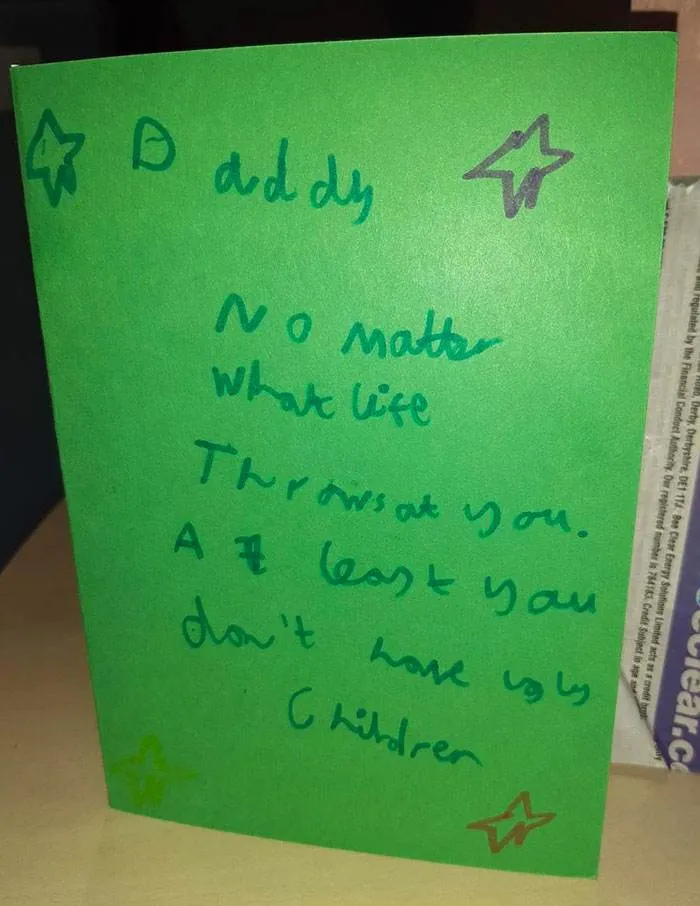 Daddy
No matter
what life
Throws at you.
At least you
don't have ugly
Children
Road, Derby, Derbyshire, DE1 1TJ. Bee Clear Energy Solutions Limited acts as a credit
and regulated by the Financial Conduct Authority. Our registered number is 764183. Credit Subject to age and
eclear.c